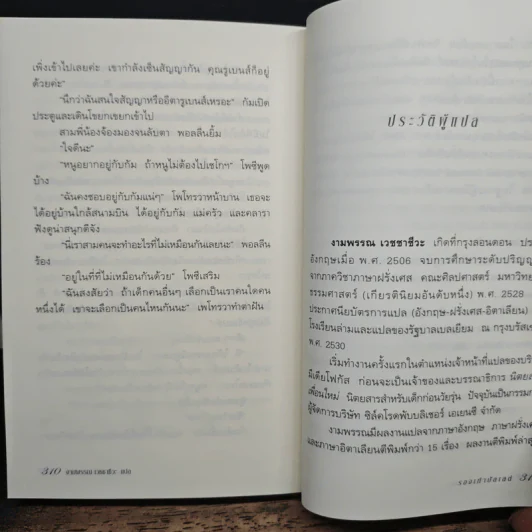 เพิ่งเข้าไปเลยค่ะ เขากำลังเซ็นสัญญากัน คุณรูเบนส์ก็อยู่
ด้วยค่ะ"
"นึกว่าฉันสนใจสัญญาหรืออีตารูเบนส์เหรอะ" กัมเปิด
ประตูและเดินโขยกเขยกเข้าไป
สามพี่น้องจ้องมองจนลับตา พอลลีนยิ้ม
"ใจดีนะ"
"หนูอยากอยู่กับกัม ถ้าหนูไม่ต้องไปเชโกฯ" โพซีพูด
บ้าง
"ฉันคงชอบอยู่กับกัมแน่ๆ" โพโทรวาหน้าบาน เธอจะ
ได้อยู่บ้านใกล้สนามบิน ได้อยู่กับกัม แม่ครัว และคลารา
ฟังดูน่าสนุกดีจัง
"นี่เราสามคนจะทำอะไรที่ไม่เหมือนกันเลยนะ" พอลลีน
ร้อง
"อยู่ในที่ที่ไม่เหมือนกันด้วย" โพซีเสริม
"ฉันสงสัยว่า ถ้าเด็กคนอื่นๆ เลือกเป็นเราคนใดคน
หนึ่งได้ เขาจะเลือกเป็นคนไหนกันนะ" เพโทรวาทำตาฝัน
310 งามพรรณ เวชชาชีวะ แปล
ประวัติผู้แปล
งามพรรณ เวชชาชีวะ เกิดที่กรุงลอนดอน
อังกฤษเมื่อ พ.ศ. 2506 จบการศึกษาระดับปริญญ
จากภาควิชาภาษาฝรั่งเศส คณะศิลปศาสตร์ มหาวิทย
ธรรมศาสตร์ (เกียรตินิยมอันดับหนึ่ง) พ.ศ. 2528
ประกาศนียบัตรการแปล (อังกฤษ-ฝรั่งเศส-อิตาเลียน)
โรงเรียนล่ามและแปลของรัฐบาลเบลเยียม ณ กรุงบรัสเ
พ.ศ. 2530
เริ่มทำงานครั้งแรกในตำแหน่งเจ้าหน้าที่แปลของบริ
มีเดียโฟกัส ก่อนจะเป็นเจ้าของและบรรณาธิการ นิตยส
เพื่อนใหม่ นิตยสารสำหรับเด็กก่อนวัยรุ่น ปัจจุบันเป็นกรรมก
ผู้จัดการบริษัท ซิล์คโรดพับบลิเชอร์ เอเยนซี จำกัด
งามพรรณมีผลงานแปลจากภาษาอังกฤษ ภาษาฝรั่งเ
และภาษาอิตาเลียนตีพิมพ์กว่า 15 เรื่อง ผลงานตีพิมพ์ล่าสุ